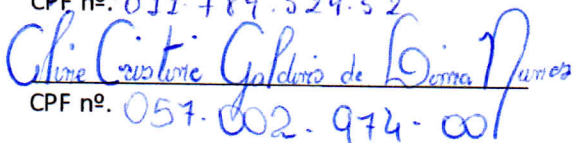 CPF nº. 011.789.524.52
Aline Cristine Galdino de Lima Nunes
CPF nº. 057.002.974-00